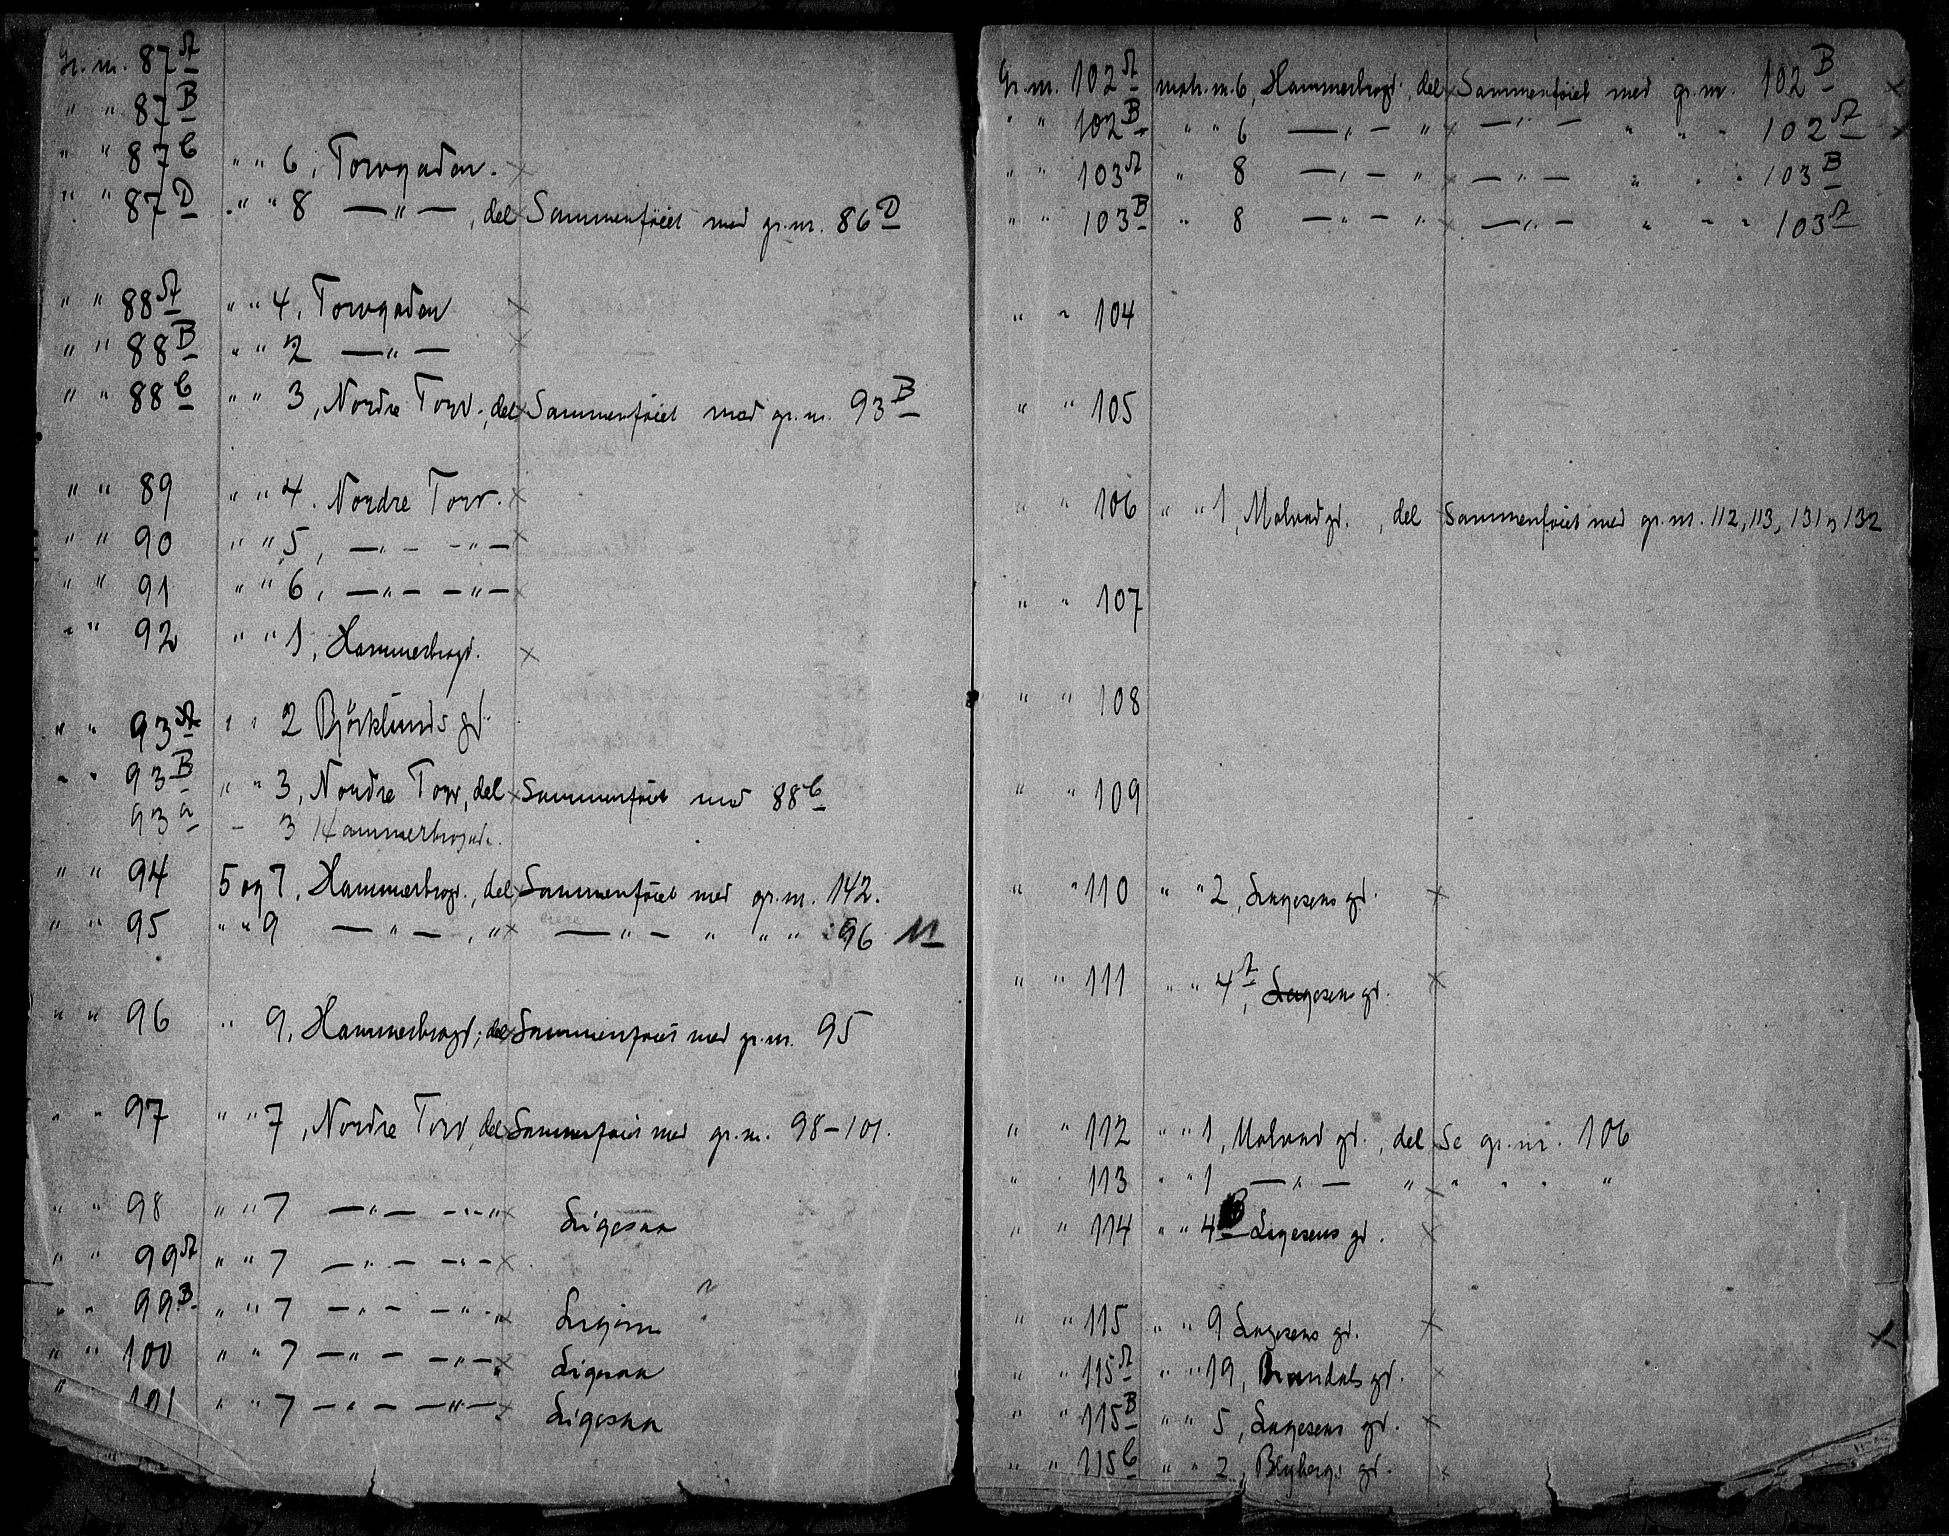 Gr. nr. 87 A
" " 87 B
" " 87 C " " 6, Torvgaden. ×
" " 87 D " " 8 — " — , del × Sammenføiet med gr. nr. 86 D
" " 88 A " " 4, Torvgaden ×
" " 88 B " " 2 — " — ×
" " 88 C " " 3, Nordre Torv, del × Sammenføiet med gr. nr. 93 B
" " 89 " " 4. Nordre Torv. ×
" " 90 " " 5, — " — — " — ×
" " 91 " " 6, — " — — " — ×
" " 92 " " 1, Hammerbrogd. ×
" " 93 A " " 2 Björklunds gd.
" " 93 B " " 3, Nordre Torv, del × Sammenføiet med 88 C
93 a - 3 Hammerbrogade.
" " 94 5 og 7, Hammerbrogd., del × Sammenføiet med gr. nr. 142.
" " 95 " " 9 — " — , " × — " — " " " 96
" " 96 " 9, Hammerbrogd, del × Sammenføiet med gr. nr. 95
" " 97 " " 7, Nordre Torv, del Sammenføiet med gr. nr. 98-101.
" " 98 " " 7 — " — — " — × Ligesaa
" " 99 A " " 7 — " — — " — ×
" " 99 B " " 7 — " — — " — × ?
" " 100 " " 7 — " — — " — × Ligesaa
" 101 " " 7 — " — — " — × Ligesaa
Gr. nr. 102 A matr. nr. 6, Hammerbrogd., del × Sammenføiet med gr. nr. 102 B ×
" " 102 B " " 6 — " — " × — " — " " " 102 A ×
" " 103 A " 8 — " — " × — " — " " " 103 B
" " 103 B " 8 — " — " × — " — " " " 103 A
" " 104
" " 105
" " 106 " " 1, Malvad gd. , del × Sammenføiet med gr. nr. 112, 113, 131 og 132
" " 107
" " 108
" " 109
" " 110 " " 2, Lagesens gd. ×
" " 111 " " 4 A, Lagesens gd. ×
" " 112 " " 1, Malvad gd. , del Se gr. nr. 106
" " 113 " " 1 — " — " × " " " "
" " 114 " " 4 B Lagesens gd. ×
" " 115 " " 9 Lagesens gd. × ×
" " 115 A " " 19, Brandals gd. ×
" " 115 B " " 5, Lagesens gd. ×
" " 115 C " " 2, Blybergs gd. ×